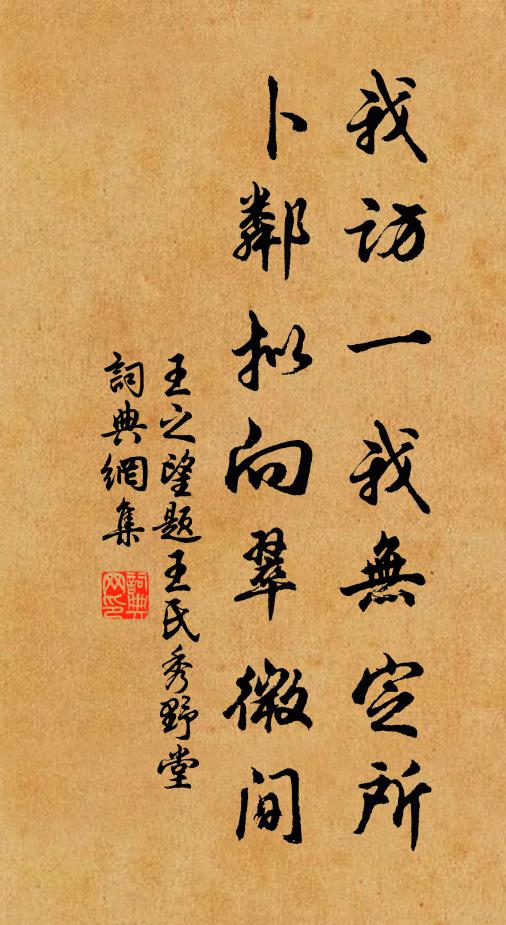 我访一我無定所
卜鄰拟向翠微间
王之望题王氏秀野堂
詞典網集
詞典网印